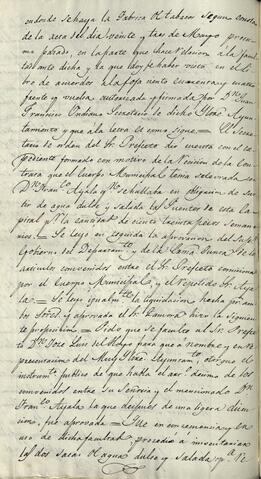 donde se haya la Fabrica de tabacos segun consta
de la acta del dia veinte y tres de Mayo proxi-
mo pasado, en la parte que hace relacion a la facul-
tad ante dicha, y la que doy fe haber visto en el Li-
bro de acuerdos a la foja cuarenta y cuatro
frente y vuelta autorizada y firmada por Dn. Juan
Francisco Secretario de dicho Ylre. Ayun-
tamiento y que a la letra es como sigue. = El Secre-
tario de orden del Sr. Prefecto dio cuenta con el ex-
pediente formado con motivo de la rescision de la Con-
trata que el Cuerpo Municipal tenia celebrada con
Dn. Franco. Ayala y se hallaba en obligacion de sur-
tir de agua dulce y salada las Fuentes de esta Ca-
pital y la cantidad de ciento treinta pesos semana-
rios. = Se leyó en seguida la aprovacion del Supor.
Gobierno del Departamto. y de la Exma. Junta de los
articulos convenidos entre el Sr. Prefecto comisionado
por el Cuerpo Municipal y el repetido Sr. Aya-
la. = Se leyó igualmte. la liquidacion hecha por am-
bos Sores. y aprovada el Sr. Zamora hizo la siguien-
te proposicion. = Pido que se faculte al Sr. Prefec-
to Dn. José Luis del Hoyo para que a nombre y en re-
presentacion del Muy Ylre. Ayuntamto. otorgue el
instrumto. publico de que habla el artº. decimo de los
convenidos entre su Señoria y el mencionado Dn.
Franco. Ayala la que despues de una ligera discu-
sion, fué aprovada = Que en consecuencia y en
uso de dicha facultad procedio a inventariar
las dos Sacas de agua dulce y Salada, y